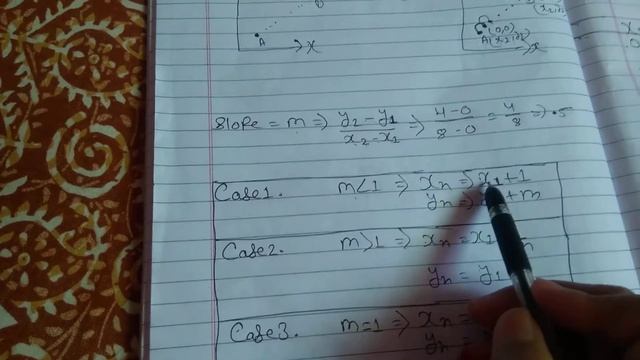 A → x
(0,0)
A(x1,y1) → x
Slope = m ⇒ y2 - y1 / x2 - x1 ⇒ 4 - 0 / 8 - 0 = 4 / 8 ⇒ .5
Case 1. m < 1 ⇒ xn ⇒ x1 + 1
yn ⇒ + m
Case 2. m > 1 ⇒ xn = x1
yn = y1
Case 3. m = 1 ⇒ xn =
yn =